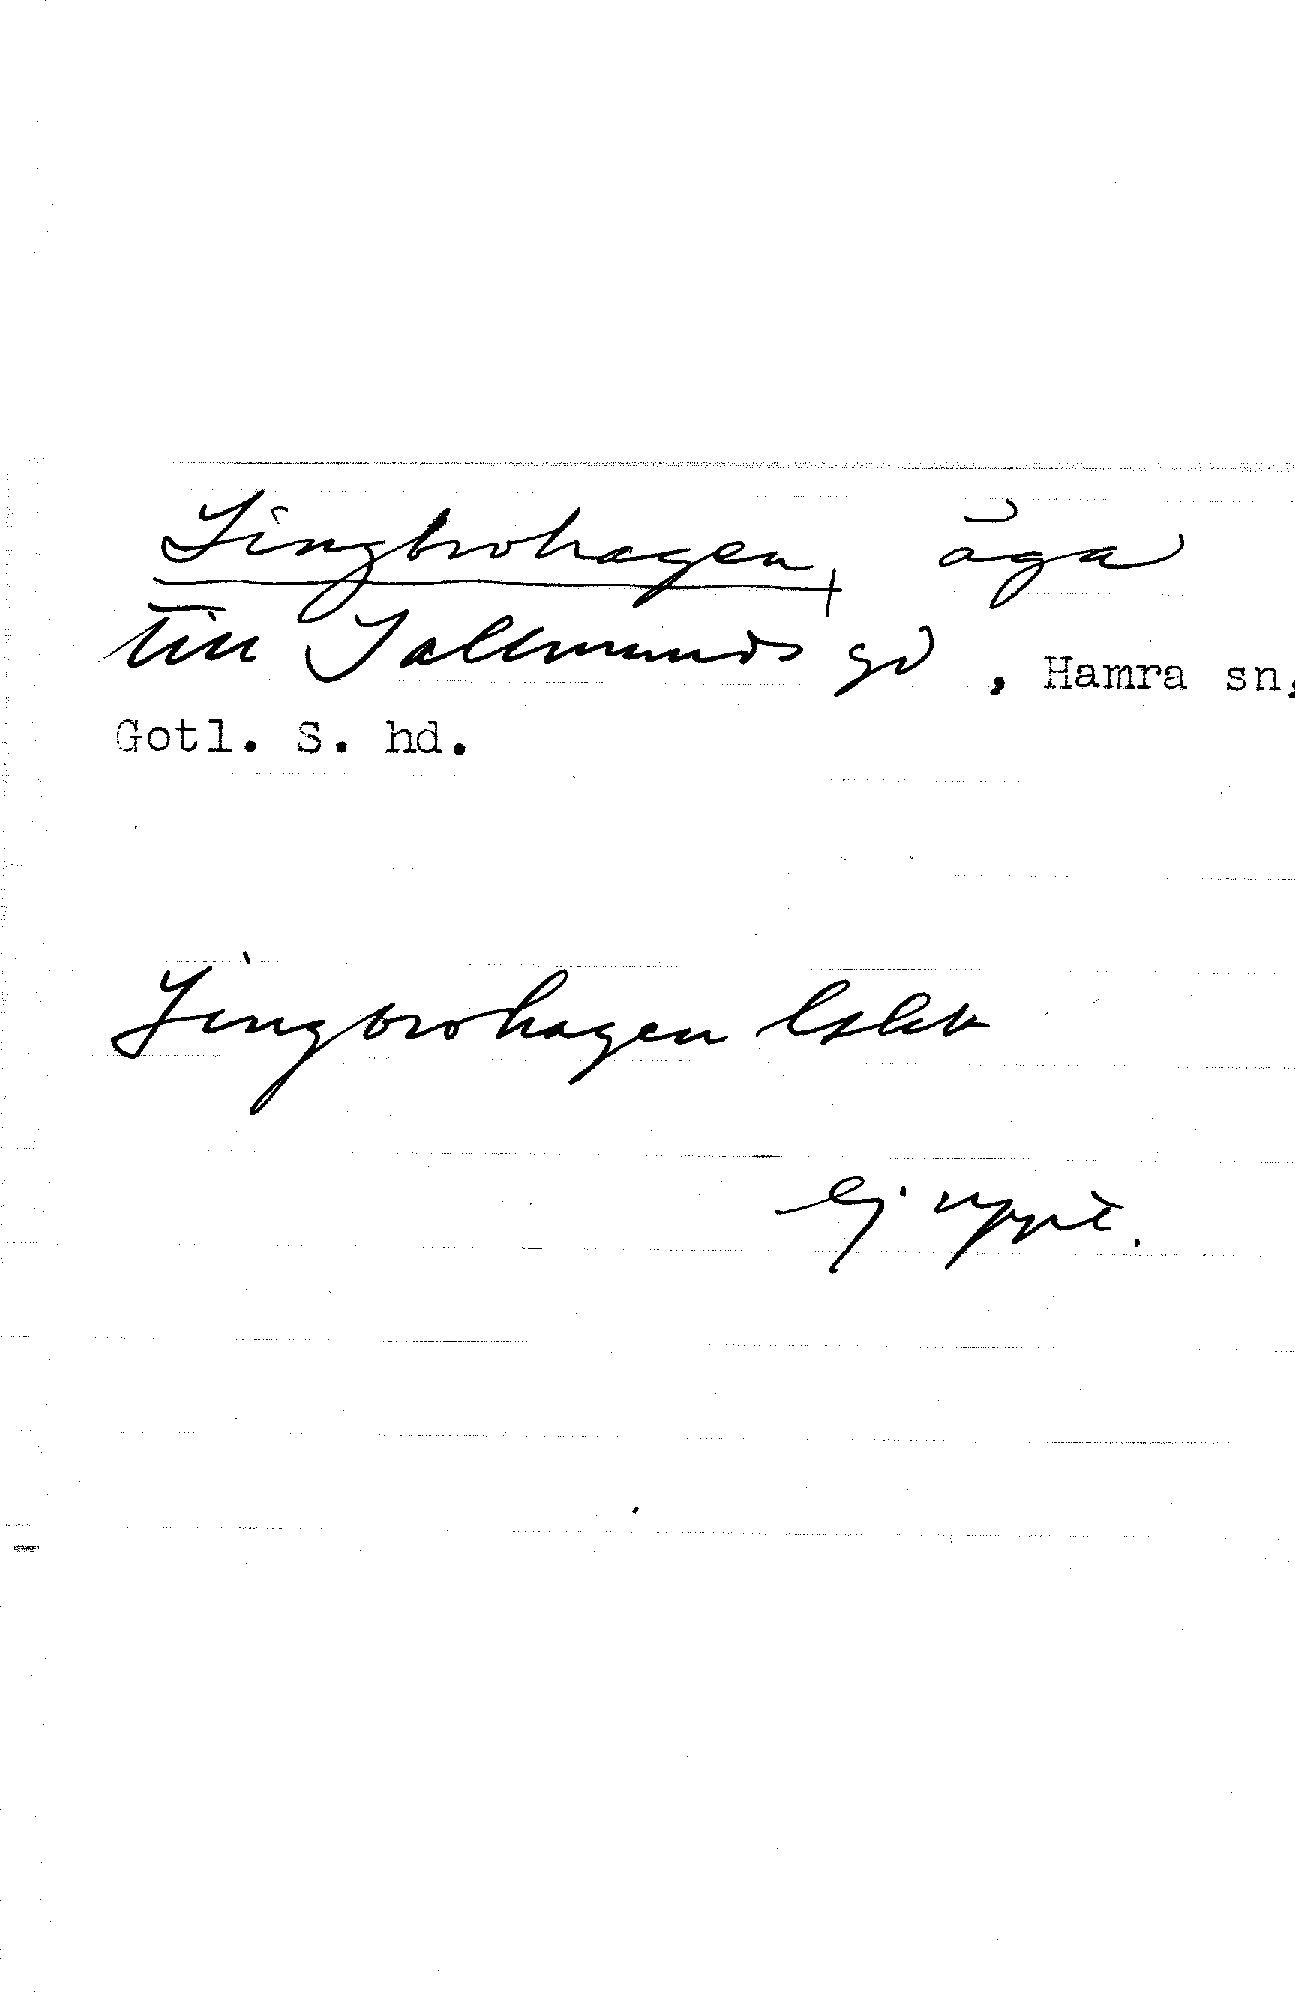 Lingbrohagen, äga
till Sallmunds gd, Hamra sn,
Gotl. S. hd.
Lingbrohagen
ej uppt.